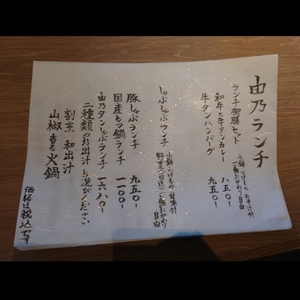 由乃ランチ
ランチ御膳セット
和牛と牛タンカレー 八五〇-
牛タンハンバーグ 九五〇-
しゃぶしゃぶランチ
豚しゃぶランチ 九五〇-
国産もつ鍋ランチ 一一〇〇-
由乃タンしゃぶランチ 一六八〇-
二種類のお出汁お選びください
割烹 和出汁
山椒香る火鍋
価格は税込です